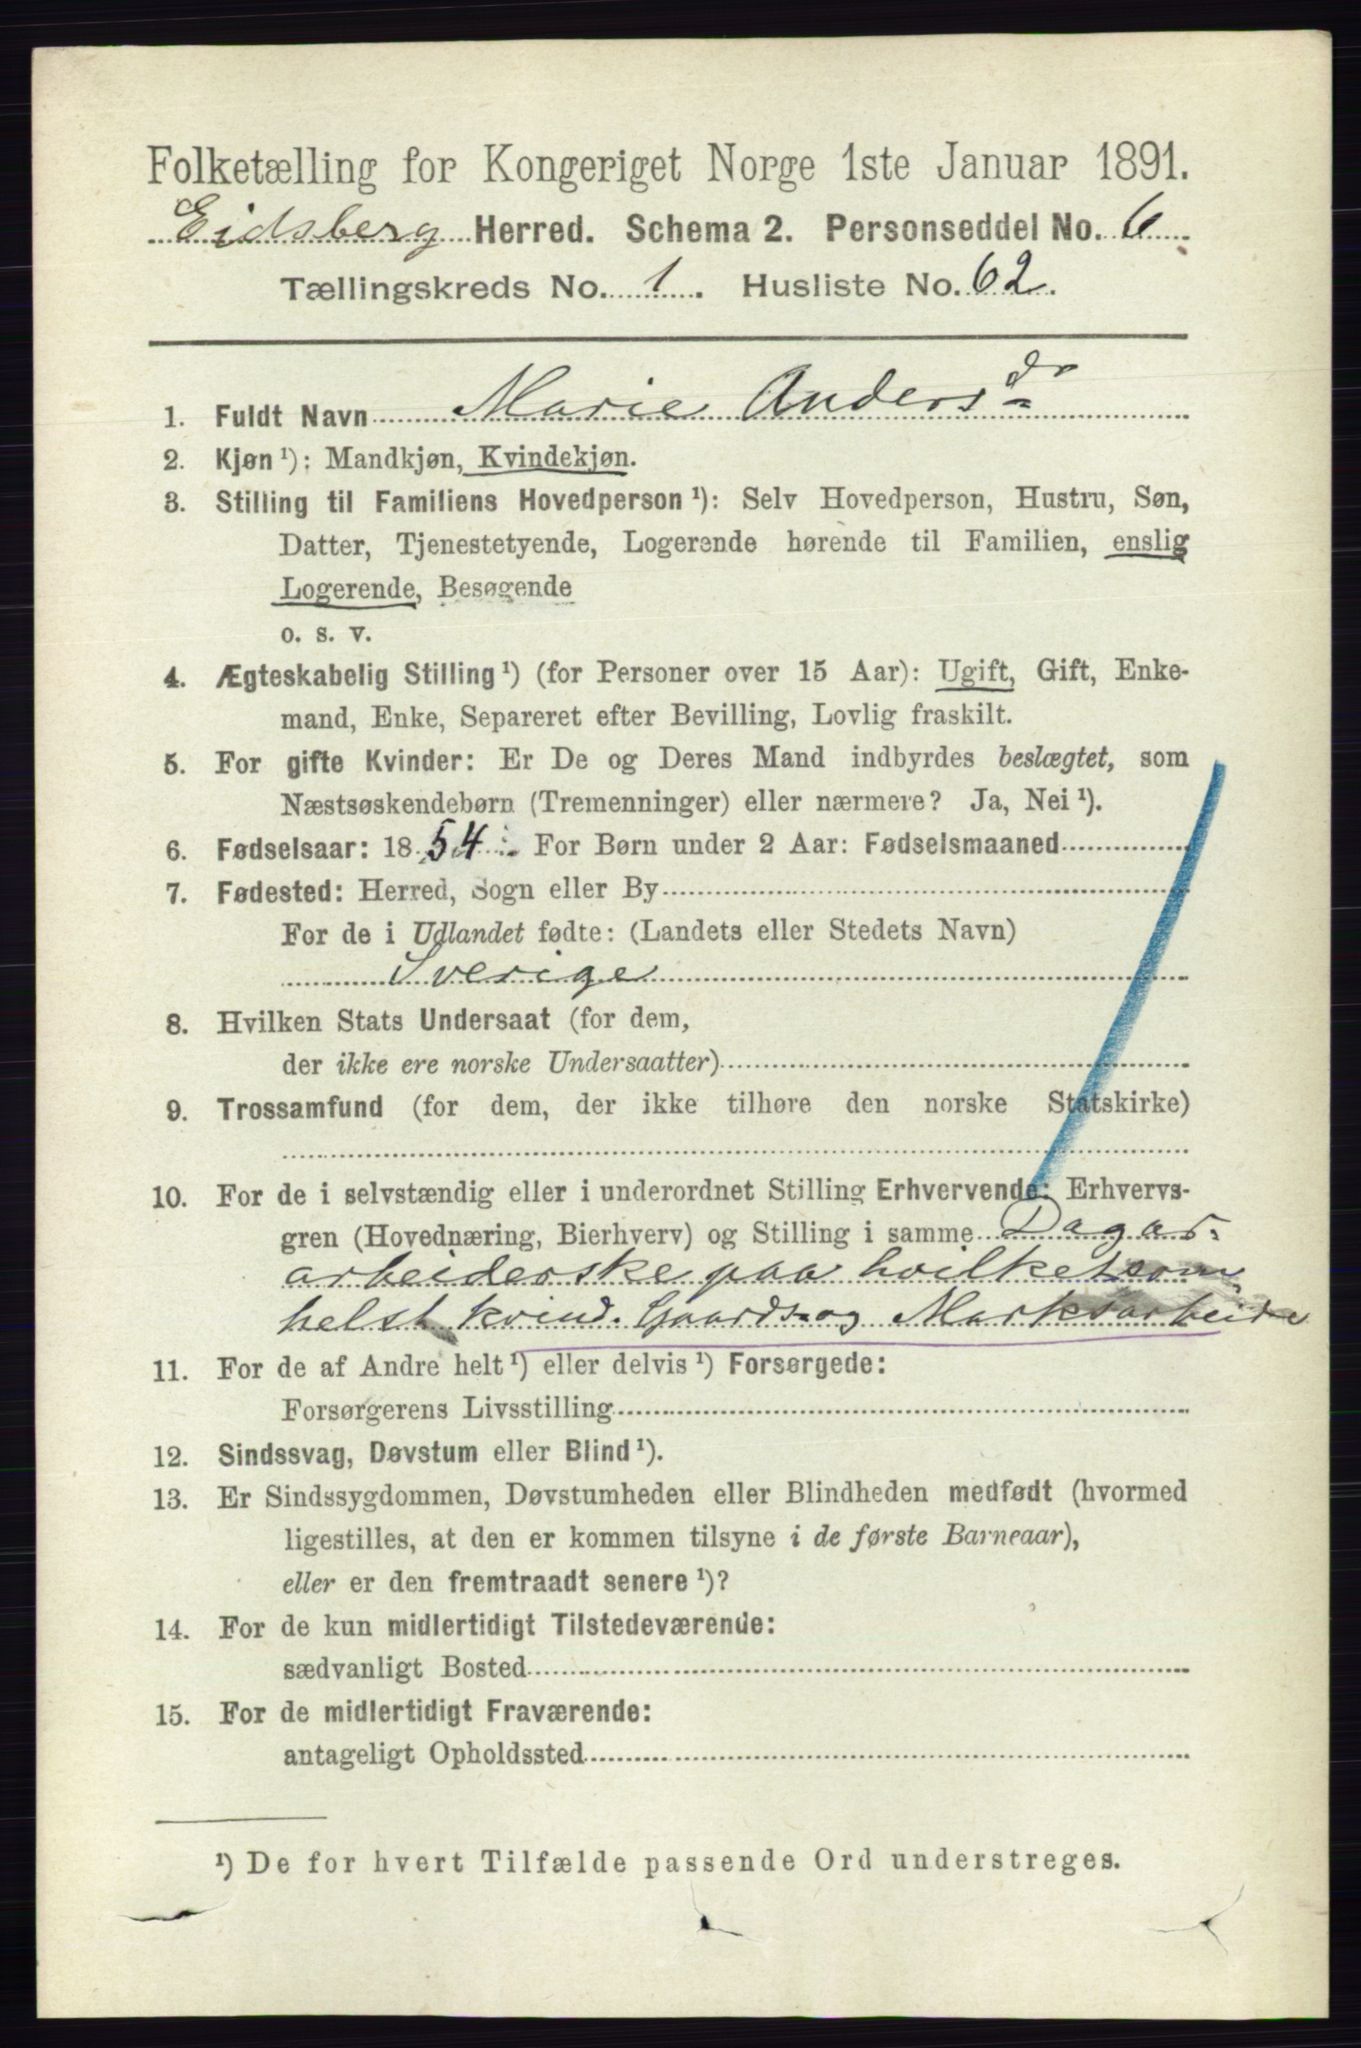 Folketælling for Kongeriget Norge 1ste Januar 1891.
Eidsberg Herred. Schema 2. Personseddel No. 6
Tællingskreds No. 1. Husliste No. 62.
1. Fuldt Navn Marie Andersdr
2. Kjøn ¹): Mandkjøn, Kvindekjøn.
3. Stilling til Familiens Hovedperson ¹): Selv Hovedperson, Hustru, Søn,
Datter, Tjenestetyende, Logerende hørende til Familien, enslig
Logerende, Besøgende
o. s. v.
4. Ægteskabelig Stilling ¹) (for Personer over 15 Aar): Ugift, Gift, Enke-
mand, Enke, Separeret efter Bevilling, Lovlig fraskilt.
5. For gifte Kvinder: Er De og Deres Mand indbyrdes beslægtet, som
Næstsøskendebørn (Tremenninger) eller nærmere? Ja, Nei ¹).
6. Fødselsaar: 1854. For Børn under 2 Aar: Fødselsmaaned
7. Fødested: Herred, Sogn eller By
For de i Udlandet fødte: (Landets eller Stedets Navn)
Sverige
8. Hvilken Stats Undersaat (for dem,
der ikke ere norske Undersaatter)
9. Trossamfund (for dem, der ikke tilhøre den norske Statskirke)
10. For de i selvstændig eller i underordnet Stilling Erhvervende: Erhvervs-
gren (Hovednæring, Bierhverv) og Stilling i samme Dagar-
arbeiderske paa hvilketsom
helst kvind. Gaards- og Marksarbeide
11. For de af Andre helt ¹) eller delvis ¹) Forsørgede:
Forsørgerens Livsstilling
12. Sindssvag, Døvstum eller Blind ¹).
13. Er Sindssygdommen, Døvstumheden eller Blindheden medfødt (hvormed
ligestilles, at den er kommen tilsyne i de første Barneaar),
eller er den fremtraadt senere ¹)?
14. For de kun midlertidigt Tilstedeværende:
sædvanligt Bosted
15. For de midlertidigt Fraværende:
antageligt Opholdssted
¹) De for hvert Tilfælde passende Ord understreges.